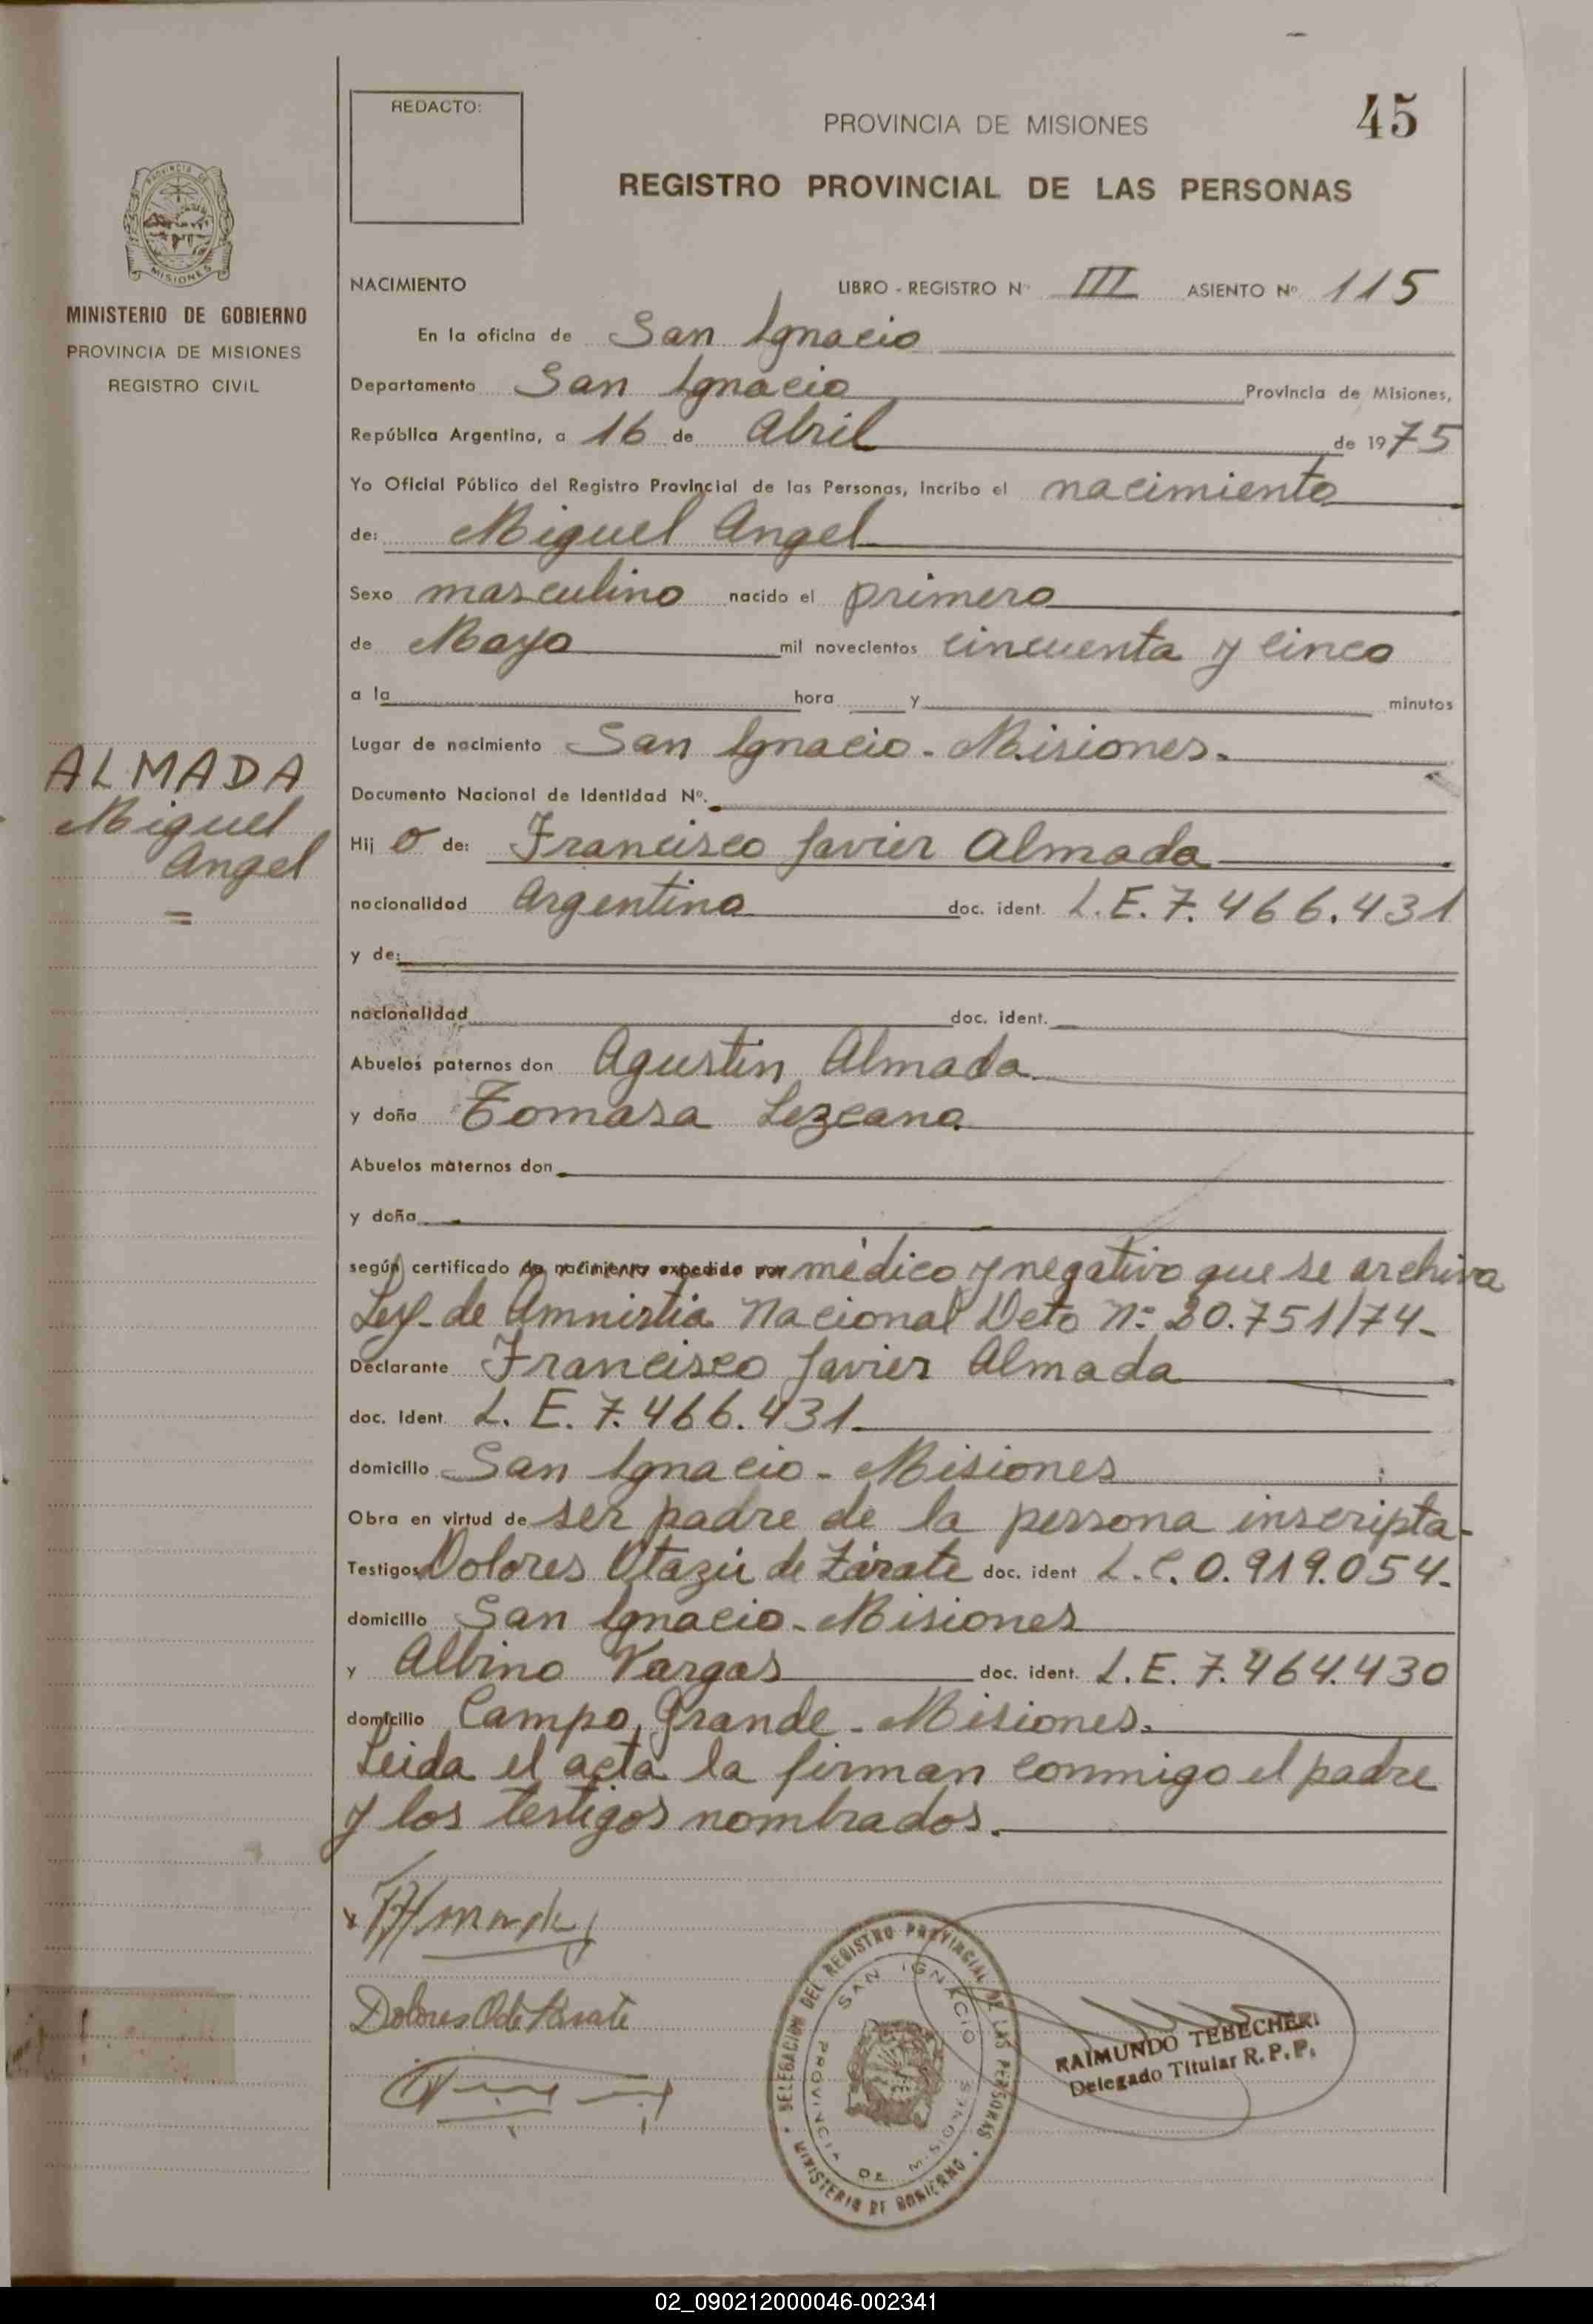 REDACTO:
PROVINCIA DE MISIONES
45
REGISTRO PROVINCIAL DE LAS PERSONAS
PROVINCIA DE
MISIONES
MINISTERIO DE GOBIERNO
PROVINCIA DE MISIONES
REGISTRO CIVIL
NACIMIENTO LIBRO - REGISTRO Nº III ASIENTO Nº 115
En la oficina de San Ignacio
Departamento San Ignacio Provincia de Misiones,
República Argentina, a 16 de Abril de 1975
Yo Oficial Público del Registro Provincial de las Personas, incribo el nacimiento
de: Miguel Angel
Sexo masculino nacido el primero
de Mayo mil novecientos cincuenta y cinco
a la hora y minutos
Lugar de nacimiento San Ignacio - Misiones.
ALMADA
Miguel
Angel
=
Documento Nacional de Identidad Nº.
Hij o de: Francisco Javier Almada
nacionalidad Argentina doc. ident. L.E. 7.466.431
y de:
nacionalidad doc. ident.
Abuelos paternos don Agustin Almada
y doña Tomasa Lezcano
Abuelos maternos don
y doña
según certificado de nacimiento expedido por médico y negativo que se archiva
Ley de Amnistia Nacional Dcto Nº 20.751/74-
Declarante Francisco Javier Almada
doc. Ident. L. E. 7.466.431
domicilio San Ignacio - Misiones
Obra en virtud de ser padre de la persona inscripta-
Testigos Dolores Otazú de Zárate doc. ident L.C. 0.919.054-
domicilio San Ignacio - Misiones
y Albino Vargas doc. ident. L.E. 7.464.430
domicilio Campo Grande - Misiones.
Leida el acta la firman conmigo el padre
y los testigos nombrados.
Dolores O de Zárate
DELEGACION DEL REGISTRO PROVINCIAL DE LAS PERSONAS
MINISTERIO DE GOBIERNO
SAN IGNACIO
PROVINCIA DE MISIONES
RAIMUNDO TEBECHERI
Delegado Titular R. P. P.
02_090212000046-002341